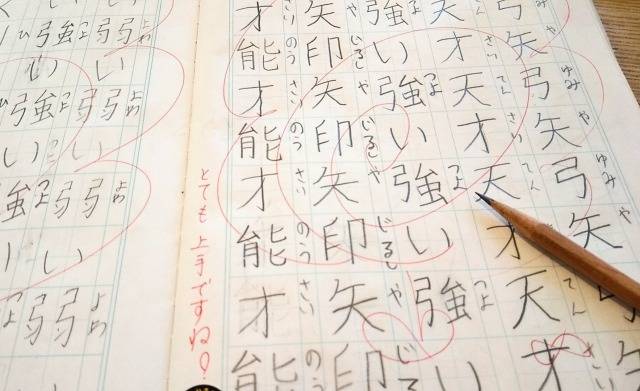 弓矢弓矢弓矢
ゆみやゆみや
天才天才天才天才
てんさいてんさいてん
強い強い強い強
つよつよつよ
矢印矢印矢印矢印
じるしやじるしやじるしやじるし
才能才能才能才能
さいのうさいのうさいのうさいのう
とても上手ですね。
弱い弱い弱い弱
よわよわよわよわ
強い強い強い